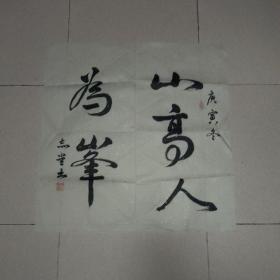 庚寅冬
山高人
為峯
志堂书